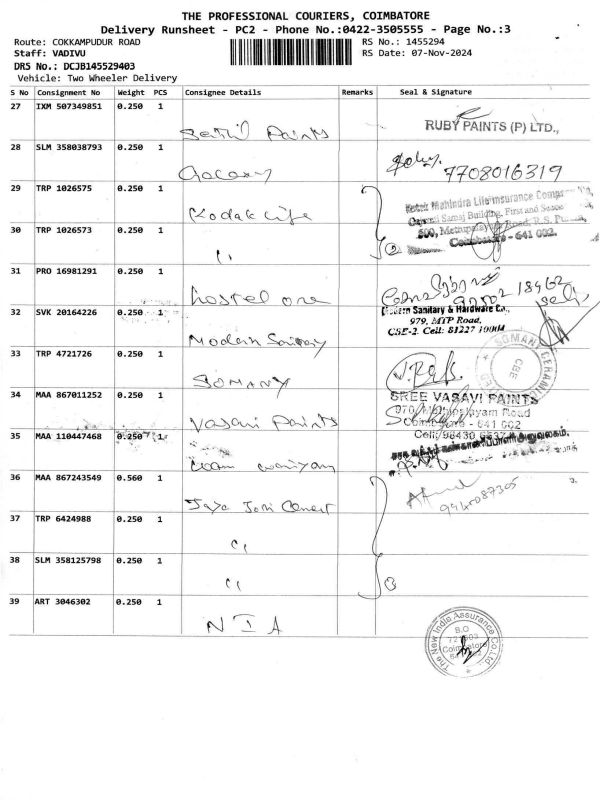 THE PROFESSIONAL COURIERS, COIMBATORE
Delivery Runsheet - PC2 - Phone No.:0422-3505555 - Page No.:3
Route: COKKAMPUDUR ROAD
RS No.: 1455294
Staff: VADIVU
RS Date: 07-Nov-2024
DRS No.: DCJB145529403
Vehicle: Two Wheeler Delivery
S No Consignment No Weight PCS Consignee Details Remarks Seal & Signature
27 IXM 507349851 0.250 1
Senthil Paints
RUBY PAINTS (P) LTD.,
28 SLM 358038793 0.250 1
Galaxy
7708016319
29 TRP 1026575 0.250 1
Kodak Life
Kotak Mahindra Life Insurance Company
Samaj Building, First and
500, Mettupalayam Road, R.S. Puram,
Coimbatore - 641 002.
30 TRP 1026573 0.250 1
"
2
31 PRO 16981291 0.250 1
hostel one
32 SVK 20164226 0.250 1
Modern Sanitary
Modern Sanitary & Hardware Co.,
979, MTP Road,
CBE-2. Cell: 81227 10004
33 TRP 4721726 0.250 1
SOMANY
SOMANY CERAMICS LIMITED
CBE
34 MAA 867011252 0.250 1
Vasavi Paints
SREE VASAVI PAINTS
970, Mettupalayam Road
Coimbatore - 641 002
35 MAA 110447468 0.250 1
36 MAA 867243549 0.560 1
Jaya Joti Cement
9445087305
37 TRP 6424988 0.250 1
"
38 SLM 358125798 0.250 1
"
3
39 ART 3046302 0.250 1
N I A
The New India Assurance Co.Ltd
B.O
Coimbatore